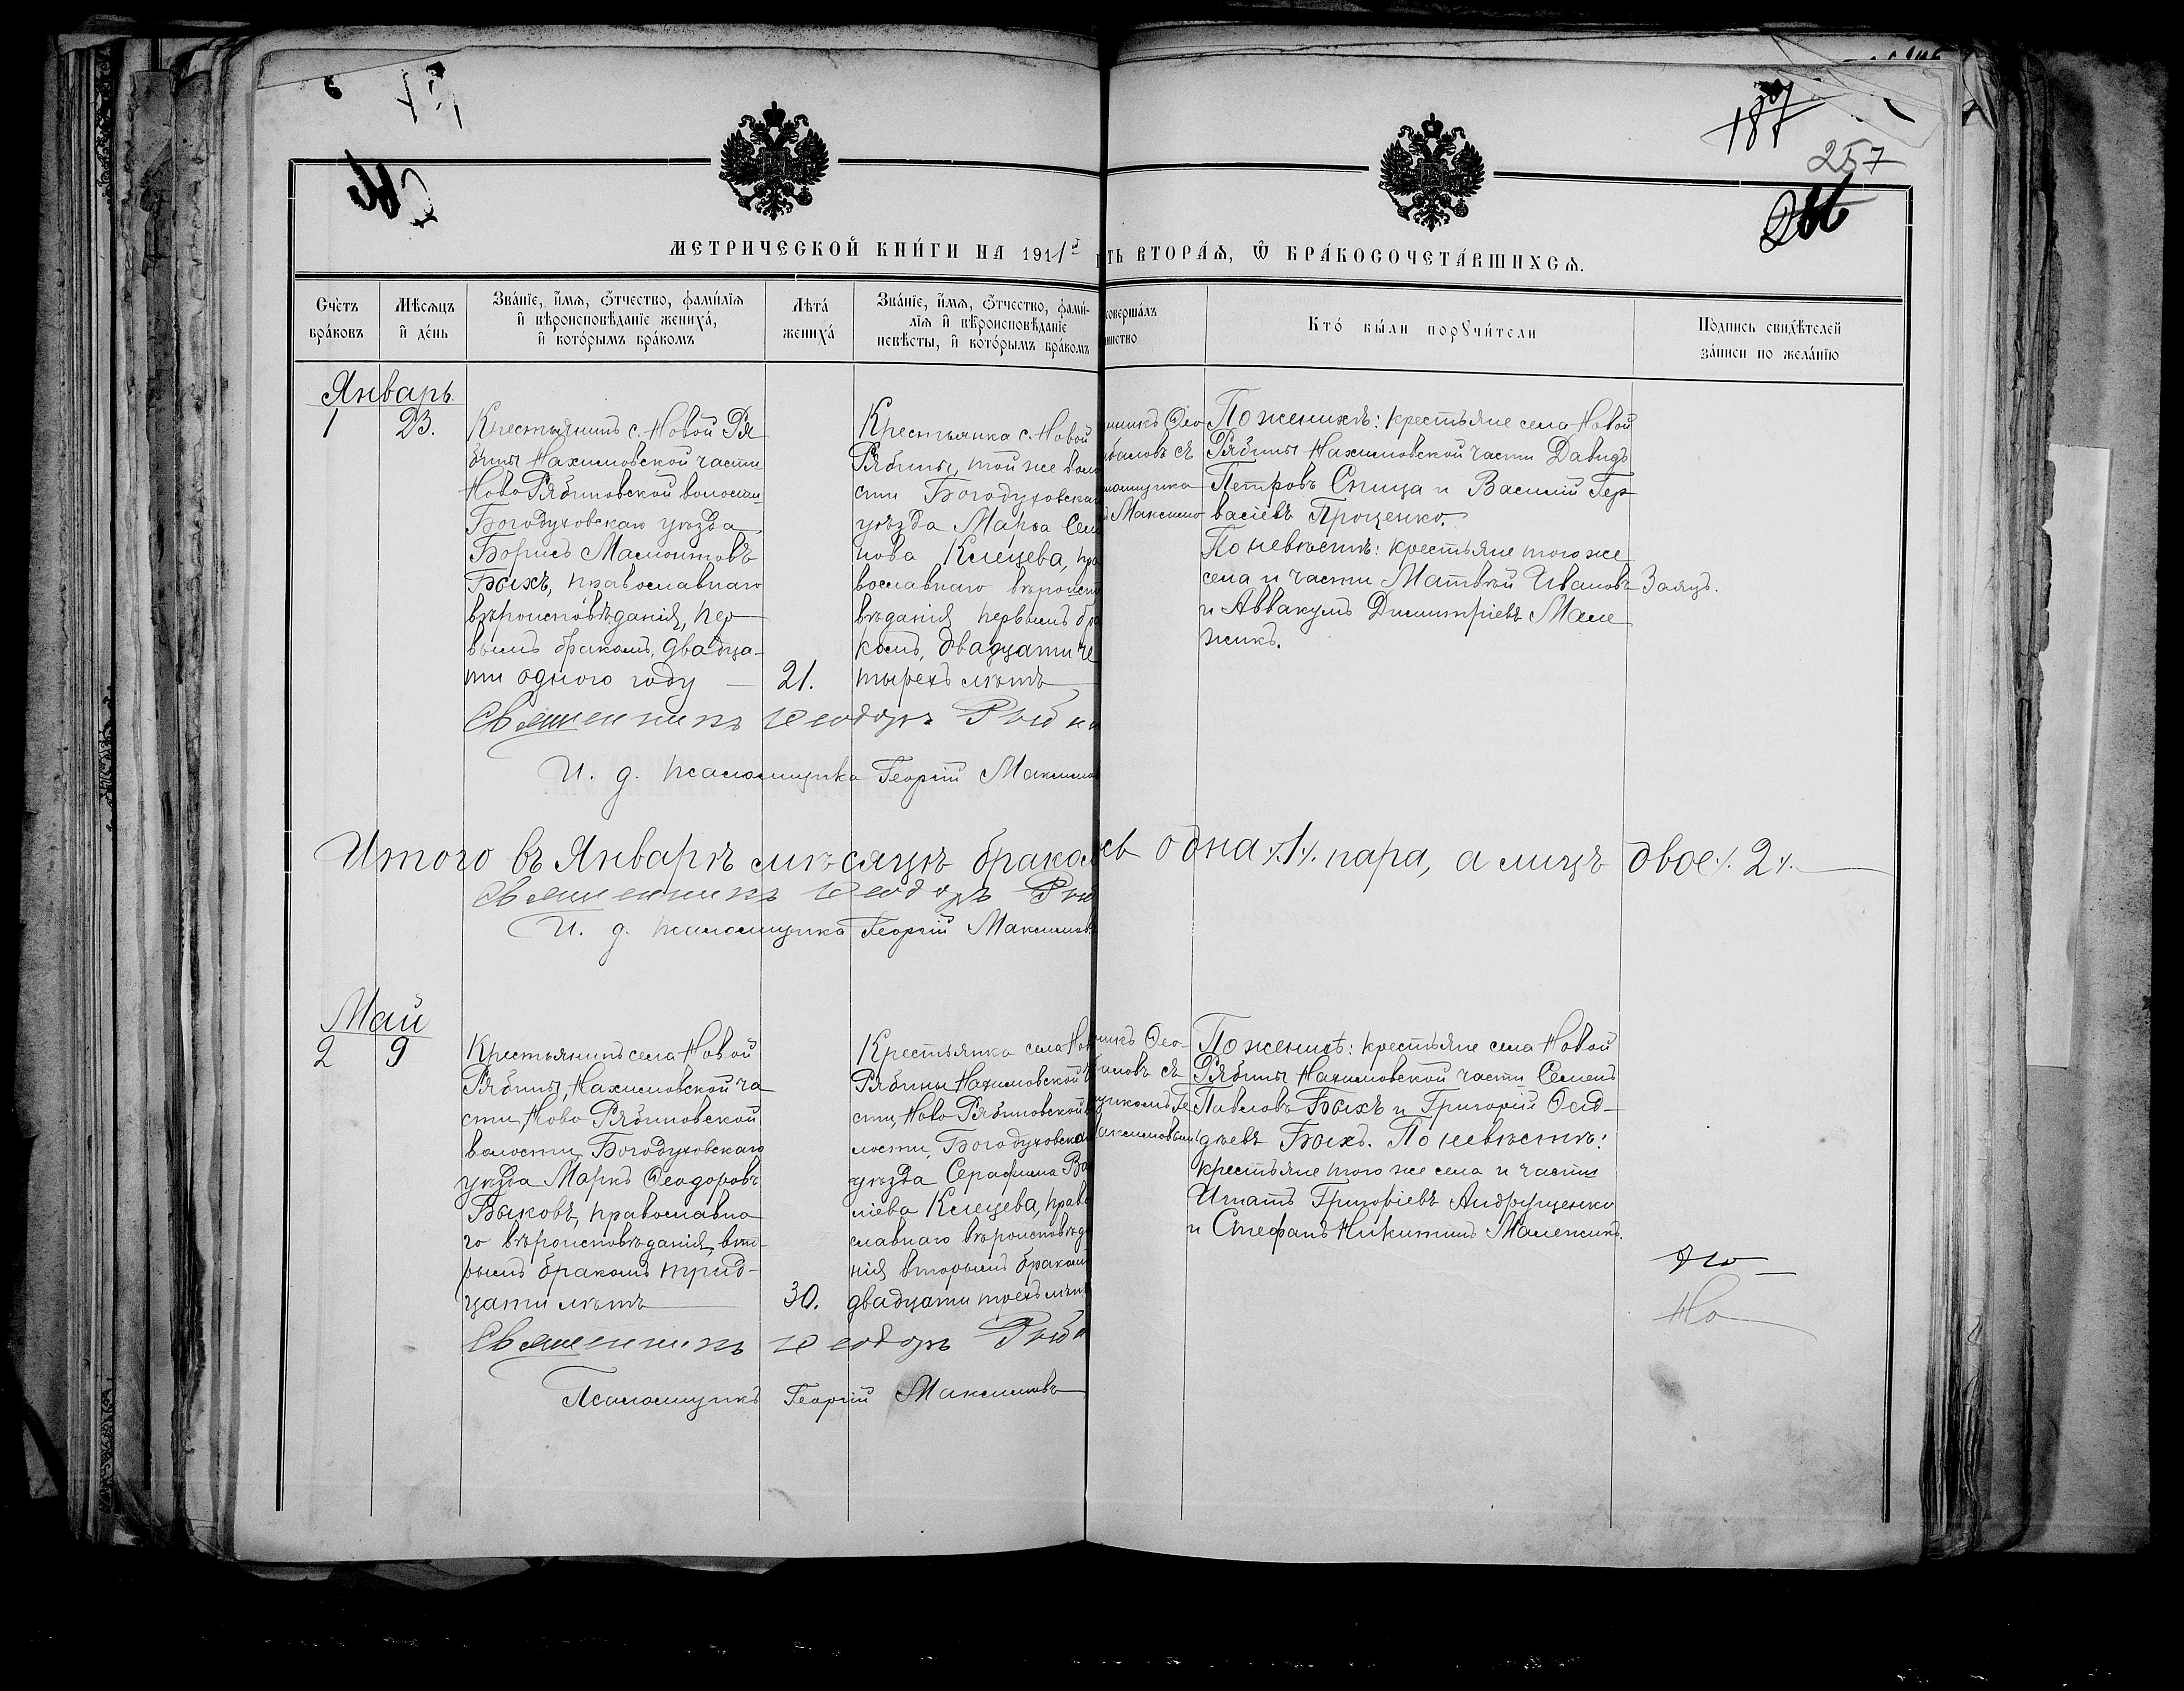 187
257
МЕТРИЧЕСКОЙ КНИ́ГИ НА 1911й
ТЬ ВТОРА́Ѧ, Ѿ БРА́КОСОЧЕТА́ВШИХСѦ.
Сче́тъ бра́ковъ
Мѣ́сѧцъ и҆ де́нь
Зва́нїе, и҆́мѧ, ѻ҆́тчество, фами́лїѧ и҆ вѣроисповѣ́данїе жениха̀, и҆ кото́рымъ бра́комъ
Лѣта̀ жениха̀
Зва́нїе, и҆́мѧ, ѻ҆́тчество, фами́лїѧ и҆ вѣроисповѣ́данїе невѣ́сты, и҆ кото́рымъ бра́комъ
соверша́лъ
инство
Кто̀ бы́ли порꙋчи́тели
По́дпись свидѣ́телей за́писи по жела́нїю
Январь
1
23.
Крестьянинъ с. Новой Ря
бины Нахимовской части
Ново Рябиновской волости
Богодуховскаго уѣзда,
Борисъ Мамонтовъ
Быхъ, православнаго
вѣроисповѣданія, пер
вымъ бракомъ, двадца-
ти одного году
21.
Крестьянка с. Новой
Рябины, той же воло
сти Богодуховска
уѣзда Марѳа Сем
нова Клецева, пра
вославнаго вѣроиспо
вѣданія первымъ бра
комъ, двадцати че
тырехъ лѣтъ
нникъ Ѳео
баловъ съ
ломщика
Максимо
По женихѣ: крестьяне села Новой
Рябины Нахимовской части Давидъ
Петровъ Спица и Василій Гер
васіевъ Проценко.
По невѣстѣ: крестьяне того же
села и части Матвѣй Ивановъ Заяцъ.
и Аввакумъ Димитріевъ Мале
жикъ.
Священникъ Ѳеодоръ
И. д. псаломщика Георгій Максимов
Итого въ Январѣ мѣсяцѣ браком
съ одна ./.1./. пара, а лицъ двое ./. 2 ./.
Священникъ Ѳеодоръ
И. д. псаломщика Георгій Максимовъ
Май
2
9
Крестьянинъ села Новой
Рябины, Нахимовской ча
сти, Ново Рябиновской
волости, Богодуховскаго
уѣзда Маркъ Ѳеодоровъ
Быковъ, православна
го вѣроисповѣданія, вто-
рымъ бракомъ трид-
цати лѣтъ
30.
Крестьянка села Нов
Рябины Нахимовской ч
сти, Ново Рябиновской
лости, Богодуховска
уѣзда Серафима Ва
ліева Клецева, прав
славнаго вѣроисповѣд
нія вторымъ браком
двадцати трехъ лѣт
никъ Ѳео-
баловъ съ
щикомъ Ге
аксимовым
По женихѣ: крестьяне села Новой
Рябины Нахимовской части Семенъ
Павловъ Быхъ и Григорій Ѳад-
дѣевъ Быхъ. По невѣстѣ:
крестьяне того же села и части
Игнатъ Григоріевъ Андрущенко
и Стефанъ Никитинъ Малежикъ.
Но
Священникъ Ѳеодоръ
Псаломщикъ Георгій Максимовъ